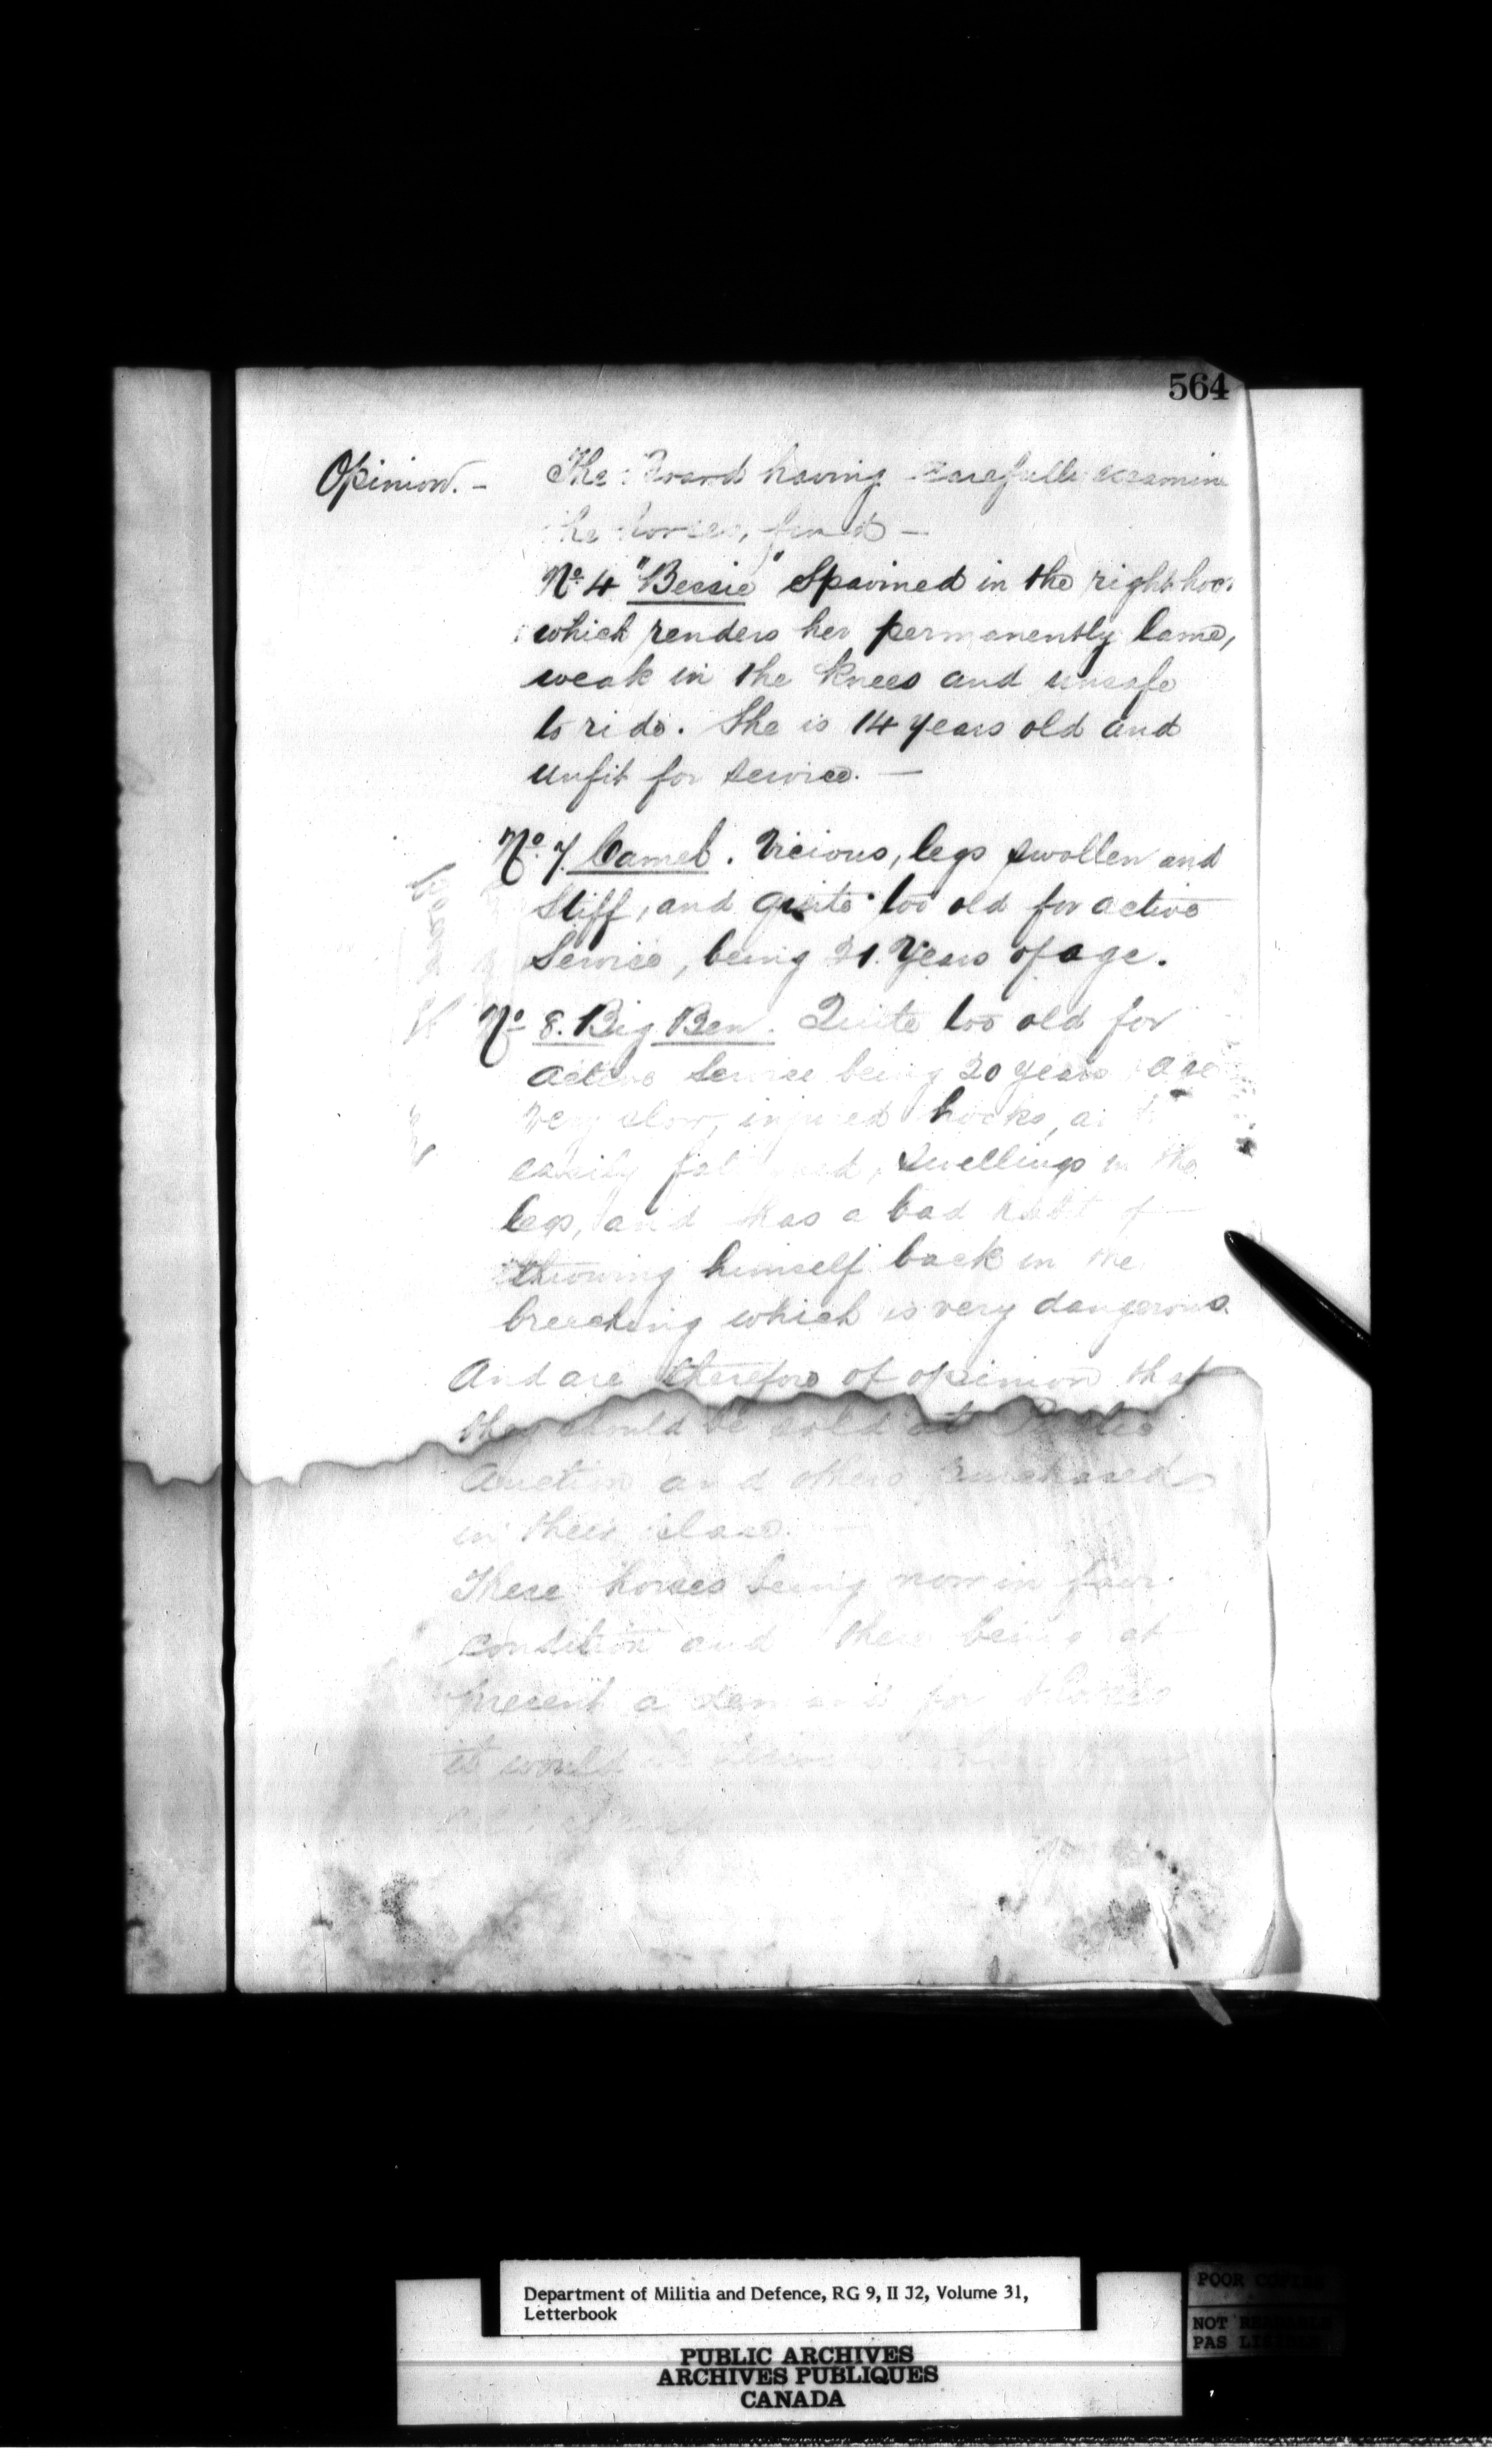 564
Opinion. - The Board having carefully examine
the horses, find -
No. 4 "Bessie" Spavined in the right hoc
which renders her permanently lame,
weak in the knees and unsafe
to ride. She is 14 years old and
unfit for service. -
No. 7. Camel. Vicious, legs swollen and
Stiff, and quite too old for active
Service, being 21 Years of age.
No 8. Big Ben. Quite too old for
active Service being 20 years age
very slow, injured hocks,
easily, swellings in the
legs, and has a bad habit of
throwing himself back in the
breeching which is very dangerous.
And are therefore of opinion that
they should be sold at Public
Auction and others purchased
in their place. -
These horses being now in fair
condition and there being at
present a demand for
it would
Department of Militia and Defence, RG 9, II J2, Volume 31,
Letterbook
PUBLIC ARCHIVES
ARCHIVES PUBLIQUES
CANADA
POOR
NOT
PAS